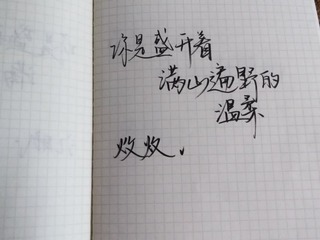 你是盛开着
满山遍野的
温柔